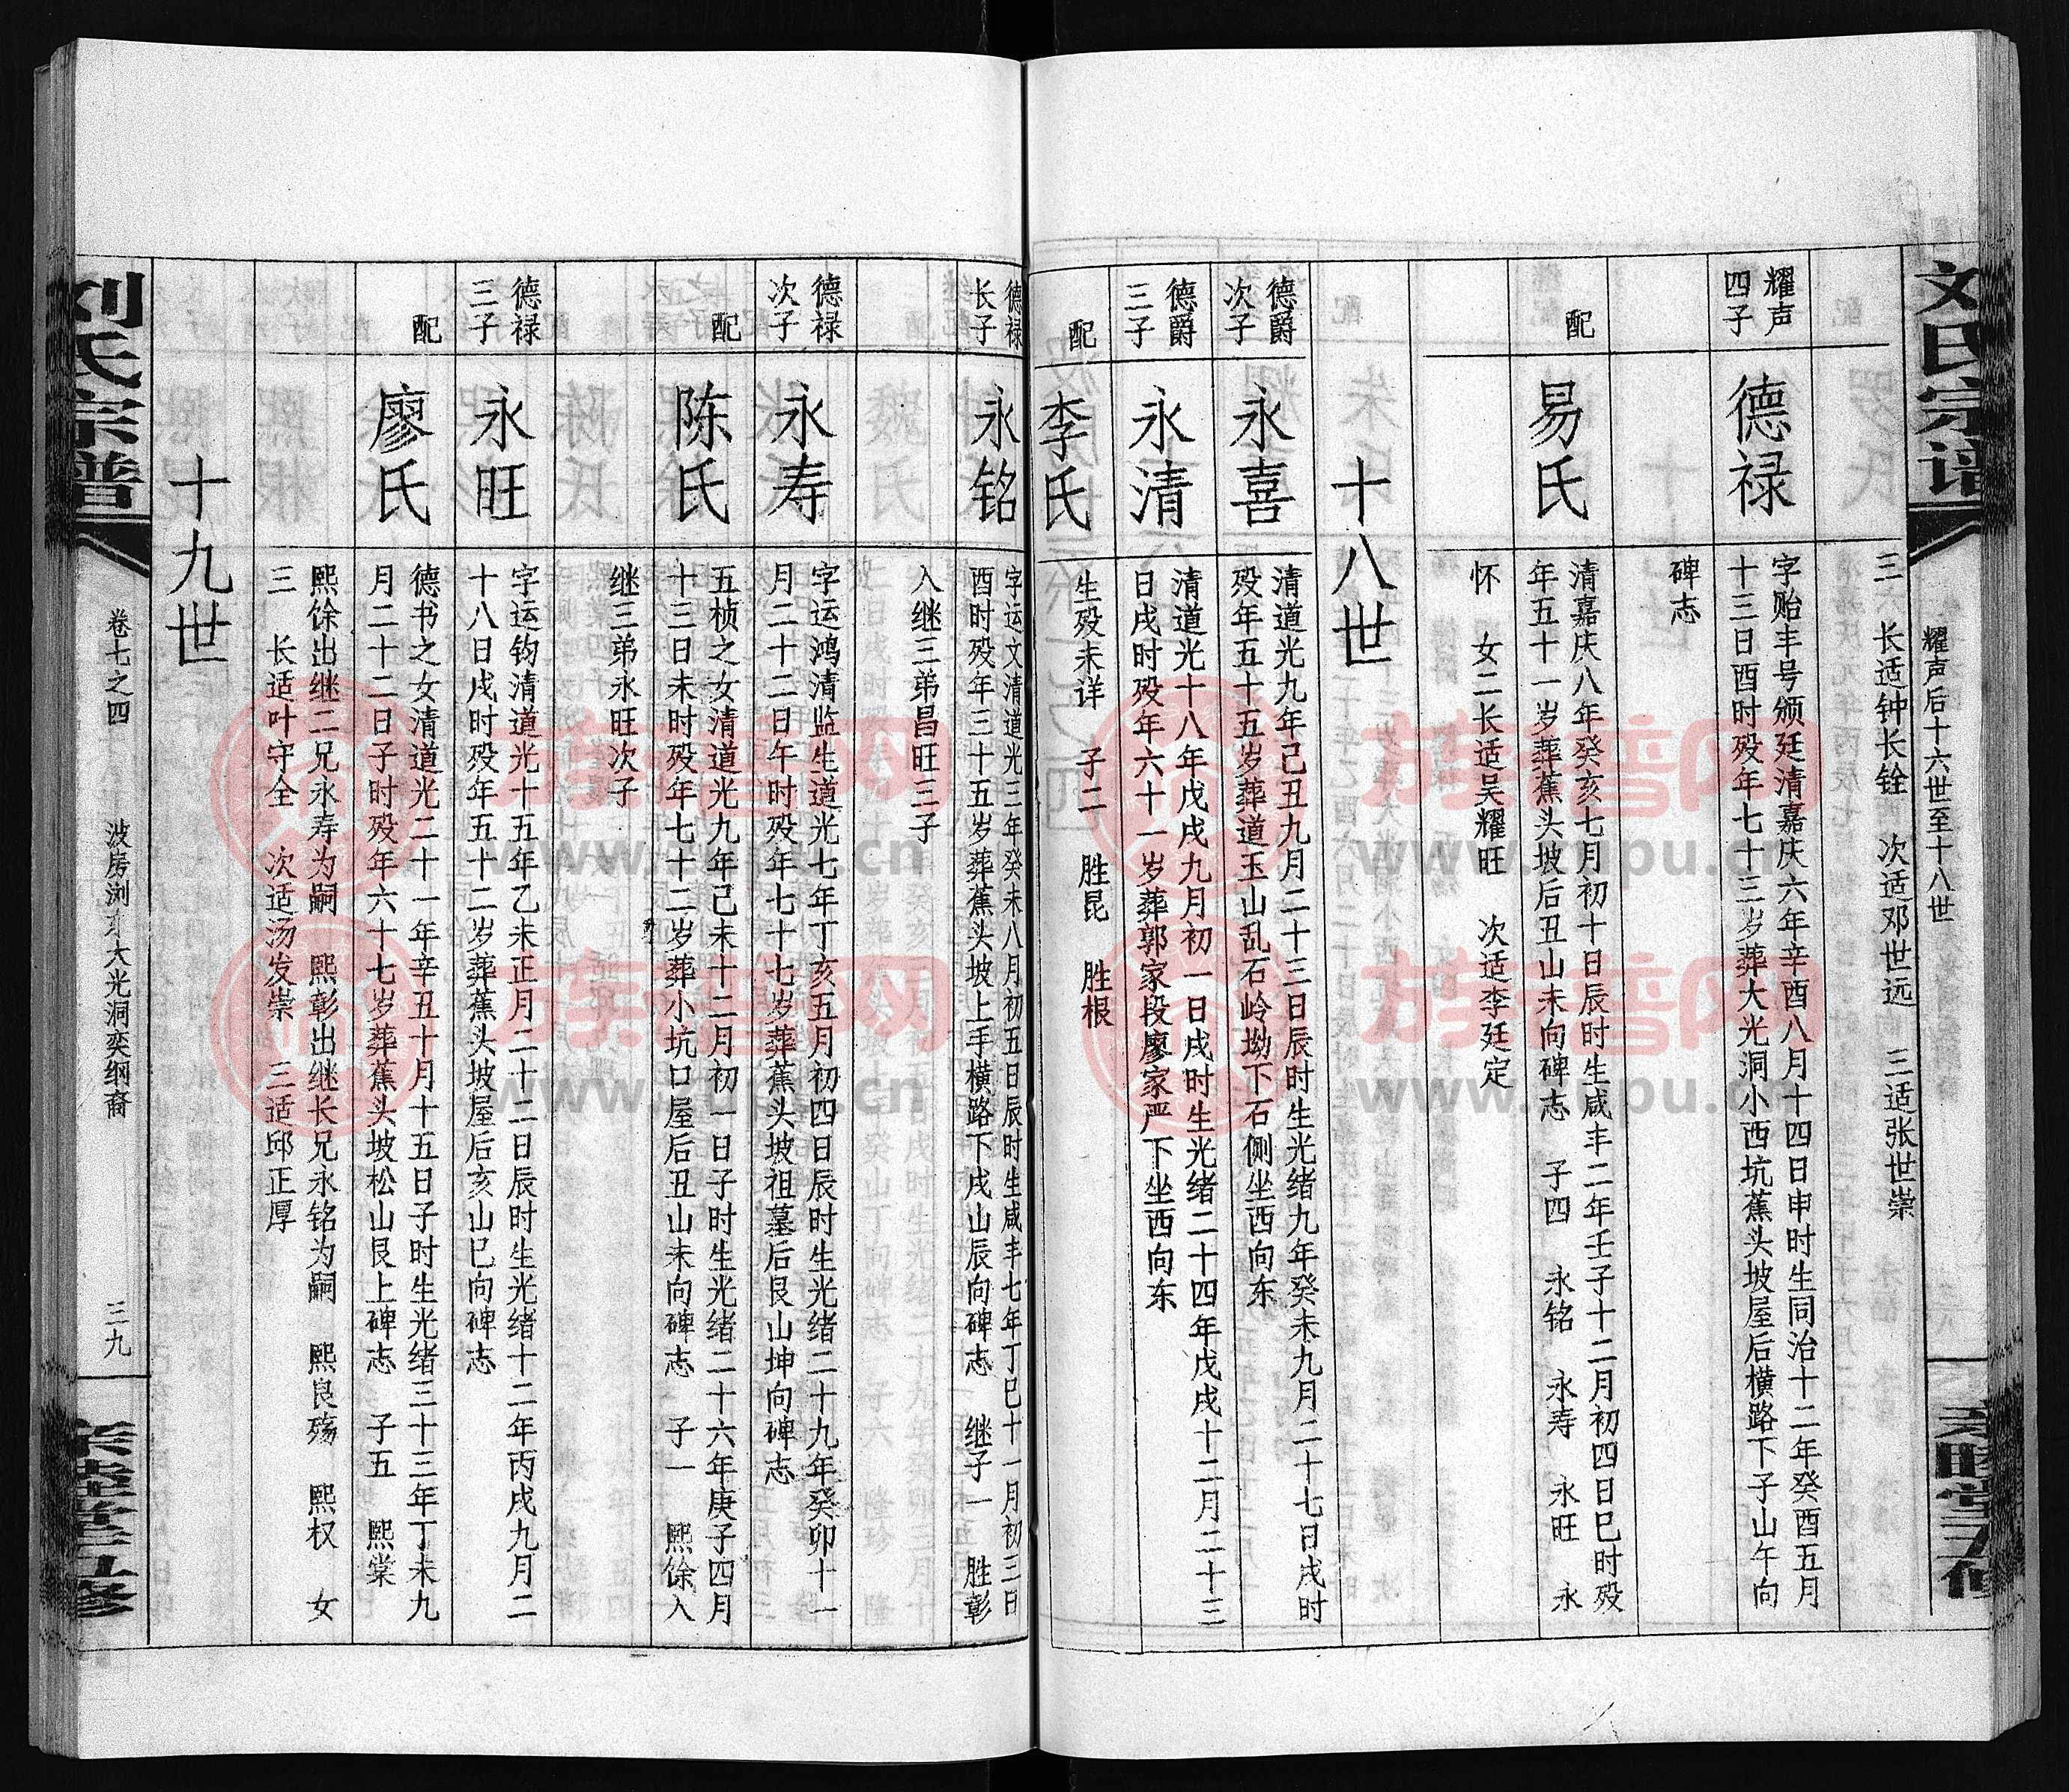 刘氏宗谱
耀声后十六世至十八世
亲睦堂五修
三 长适钟长铨 次适邓世远 三适张世崇
耀声四子
德禄
字贻丰号颁廷清嘉庆六年辛酉八月十四日申时生同治十二年癸酉五月
十三日酉时殁年七十三岁葬大光洞小西坑蕉头坡屋后横路下子山午向
碑志
配
易氏
清嘉庆八年癸亥七月初十日辰时生咸丰二年壬子十二月初四日巳时殁
年五十一岁葬蕉头坡后丑山未向碑志 子四 永铭 永寿 永旺 永
怀 女二长适吴耀旺 次适李廷定
十八世
德爵次子
永喜
清道光九年己丑九月二十三日辰时生光绪九年癸未九月二十七日戌时
殁年五十五岁葬道玉山乱石岭坳下石侧坐西向东
德爵三子
永清
清道光十八年戊戌九月初一日戌时生光绪二十四年戊戌十二月二十三
日戌时殁年六十一岁葬郭家段廖家严下坐西向东
配
李氏
生殁未详 子二 胜昆 胜根
德禄长子
永铭
字运文清道光三年癸未八月初五日辰时生咸丰七年丁巳十一月初三日
酉时殁年三十五岁葬蕉头坡上手横路下戌山辰向碑志 继子一 胜彰
入继三弟昌旺三子
德禄次子
永寿
字运鸿清监生道光七年丁亥五月初四日辰时生光绪二十九年癸卯十一
月二十二日午时殁年七十七岁葬蕉头坡祖墓后艮山坤向碑志
配
陈氏
五桢之女清道光九年己未十二月初一日子时生光绪二十六年庚子四月
十三日未时殁年七十二岁葬小坑口屋后丑山未向碑志 子一 熙馀入
继三弟永旺次子
德禄三子
永旺
字运钧清道光十五年乙未正月二十二日辰时生光绪十二年丙戌九月二
十八日戌时殁年五十二岁葬蕉头坡屋后亥山巳向碑志
配
廖氏
德书之女清道光二十一年辛丑十月十五日子时生光绪三十三年丁未九
月二十二日子时殁年六十七岁葬蕉头坡松山艮上碑志 子五 熙棠
熙馀出继二兄永寿为嗣 熙彰出继长兄永铭为嗣 熙良殇 熙权 女
三 长适叶守全 次适汤发崇 三适邱正厚
十九世
刘氏宗谱
卷七之四 波房浏东大光洞奕纲裔 三九
亲睦堂五修
族谱网
www.zupu.cn
族谱网
www.zupu.cn
族谱网
www.zupu.cn
族谱网
www.zupu.cn